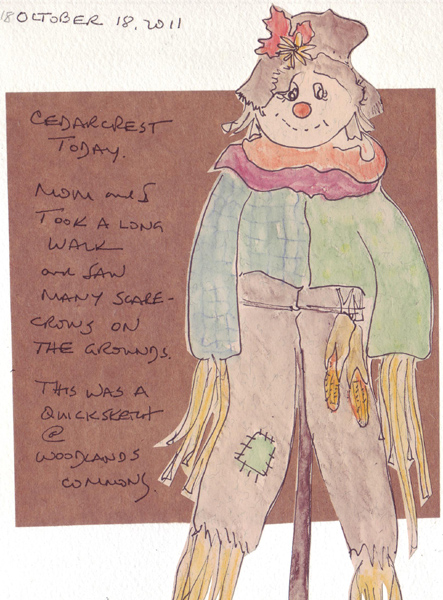 18 OCTOBER 18, 2011
CEDARCREST
TODAY.
MOM and I
TOOK A LONG
WALK
and SAW
MANY SCARE-
CROWS ON
THE GROUNDS.
THIS WAS A
QUICKSKETCH
@
WOODLANDS
COMMONS.